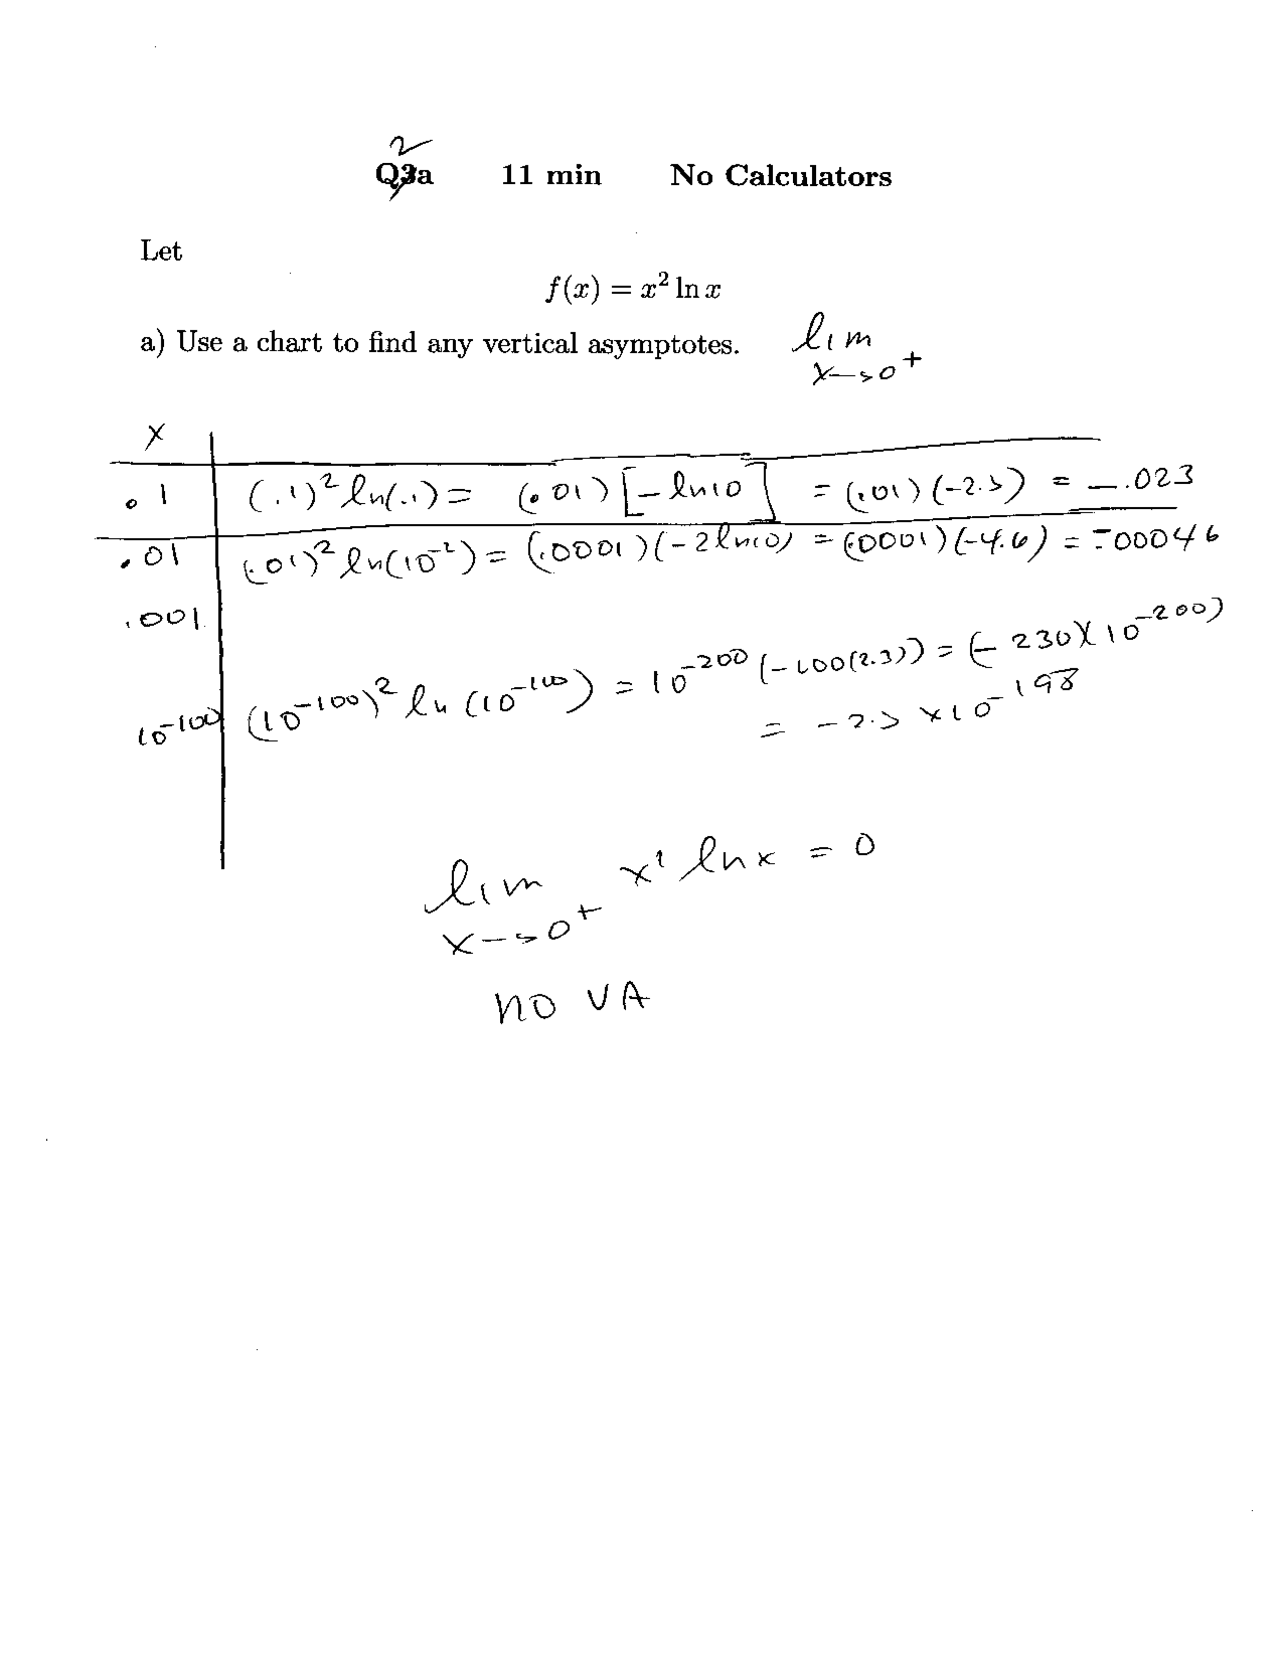 2
Q3a 11 min No Calculators
Let
f(x) = x² ln x
a) Use a chart to find any vertical asymptotes. lim x→0⁺
x
.1 (.1)² ln(.1) = (.01) [-ln10] = (.01)(-2.3) = -.023
.01 (.01)² ln(10⁻²) = (.0001)(-2ln10) = (.0001)(-4.6) = -.00046
.001
10⁻¹⁰⁰ (10⁻¹⁰⁰)² ln (10⁻¹⁰⁰) = 10⁻²⁰⁰ (-100(2.3)) = (-230)(10⁻²⁰⁰)
= -2.3 × 10⁻¹⁹⁸
lim x→0⁺ x² ln x = 0
NO VA